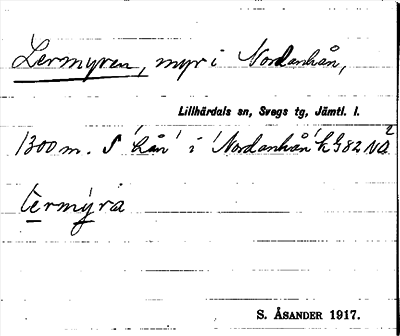 Lermyren, myr i Nordanhån,
Lillhärdals sn, Svegs tg, Jämtl. l.
1300 m. S 'hån' i 'Nordanhån' k982 NÖ
lermýra
S. ÅSANDER 1917.